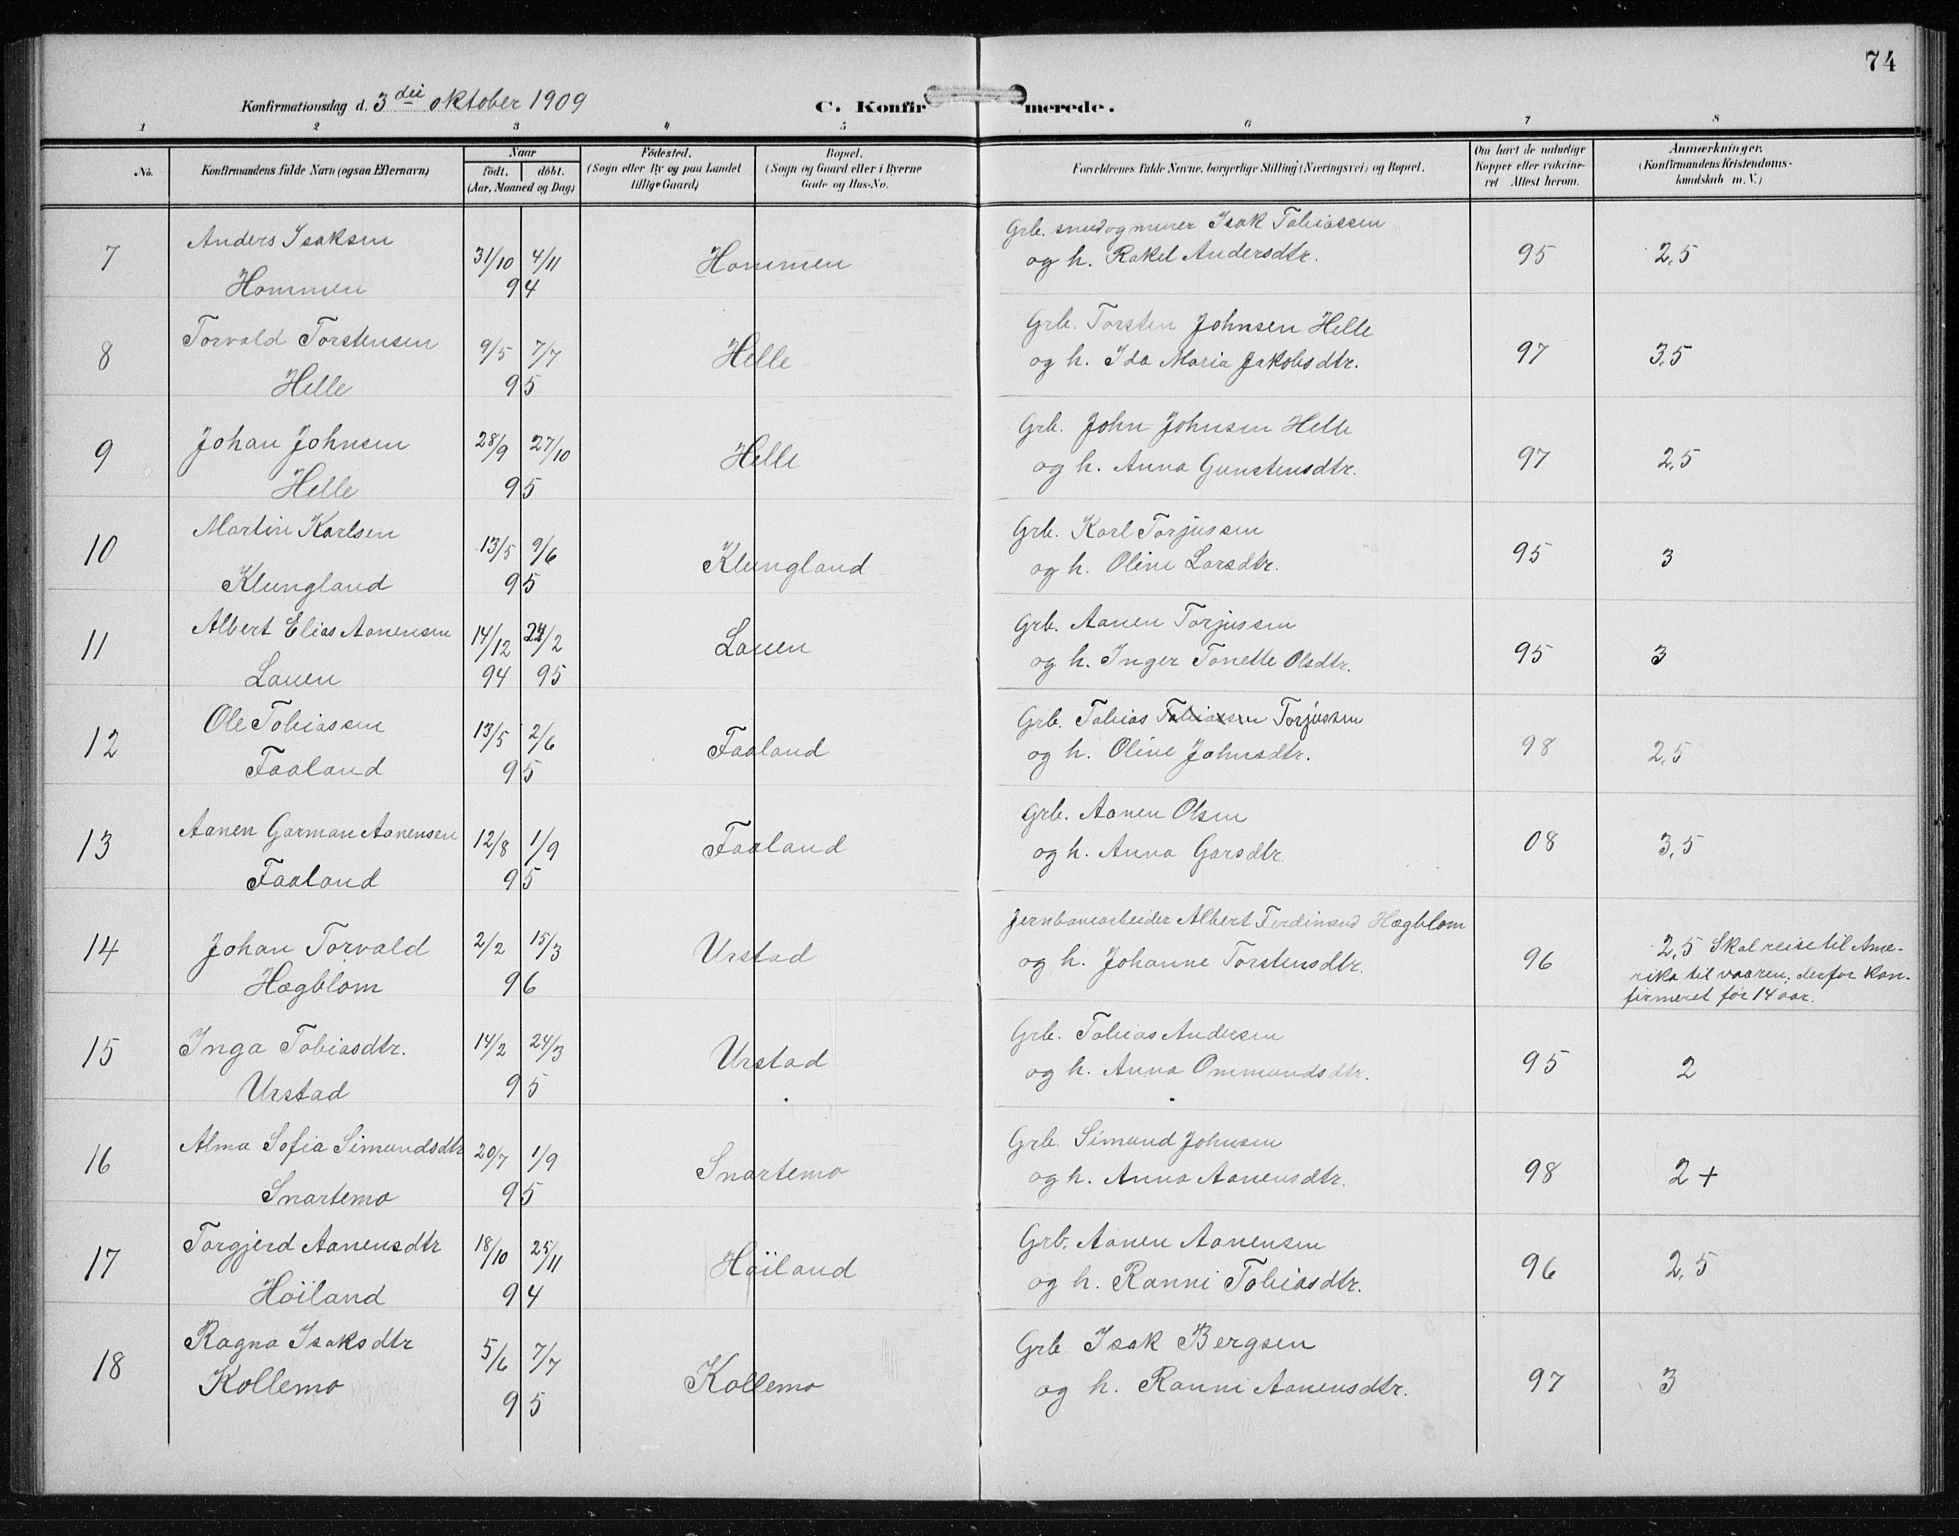 74
Konfirmationsdag d. 3dii oktober 1909
C. Konfirmerede.
1 2 3 4 5 6 7 8
No.
Konfirmandens fulde Navn (ogsaa Efternavn)
Naar
födt. döbt.
(Aar, Maaned og Dag)
Födested.
(Sogn eller By og paa Landet
tillige Gaard)
Bopæl.
(Sogn og Gaard eller i Byerne
Gade og Hus-No.
Forældrenes fulde Navne, borgerlige Stilling (Næringsvei) og Bopæl.
Om havt de naturlige
Kopper eller vakcine-
ret Attest herom.
Anmærkninger.
(Konfirmandens Kristendoms-
kundskab m. V.)
7 Anders Isaksen 31/10 4/11 Hommen Grb. smed og murer Isak Tobiassen 95 2,5
Hommen 94 og h. Rakel Andersdtr.
8 Torvald Torstensen 9/5 7/7 Helle Grb. Torsten Johnsen Helle 97 3,5
Helle 95 og h. Ida Maria Jakobsdtr.
9 Johan Johnsen 28/9 27/10 Helle Grb. John Johnsen Helle 97 2,5
Helle 95 og h. Anna Gunstensdtr.
10 Martin Karlsen 13/5 9/6 Klungland Grb. Karl Torjussen 95 3
Klungland 95 og h. Oline Larsdtr.
11 Albert Elias Aanensen 14/12 24/2 Lauen Grb. Aanen Torjussen 95 3
Lauen 94 95 og h. Inger Tonette Olsdtr.
12 Ole Tobiassen 13/5 2/6 Faaland Grb. Tobias Tobiassen Torjussen 98 2,5
Faaland 95 og h. Oline Johnsdtr.
13 Aanen Garman Aanensen 12/8 1/9 Faaland Grb. Aanen Olsen 08 3,5
Faaland 95 og h. Anna Garsdtr.
14 Johan Torvald 2/2 15/3 Urstad Jernbanearbeider Albert Ferdinand Hægblom 96 2,5 Skal reise til Ame-
Hægblom 96 og h. Johanne Torstensdtr. rika til vaaren; derfor kon-
firmeret før 14 aar.
15 Inga Tobiasdtr. 14/2 24/3 Urstad Grb. Tobias Andersen 95 2
Urstad 95 og h. Anna Ommundsdtr.
16 Alma Sofia Simundsdtr 20/7 1/9 Snartemo Grb. Simund Johnsen 98 2+
Snartemo 95 og h. Anna Aanensdtr.
17 Torgjerd Aanensdtr 18/10 25/11 Höiland Grb. Aanen Aanensen 96 2,5
Höiland 94 og h. Ranni Tobiasdtr.
18 Ragna Isaksdtr 5/6 7/7 Kollemo Grb. Isak Bergsen 97 3
Kollemo 95 og h. Ranni Aanensdtr.